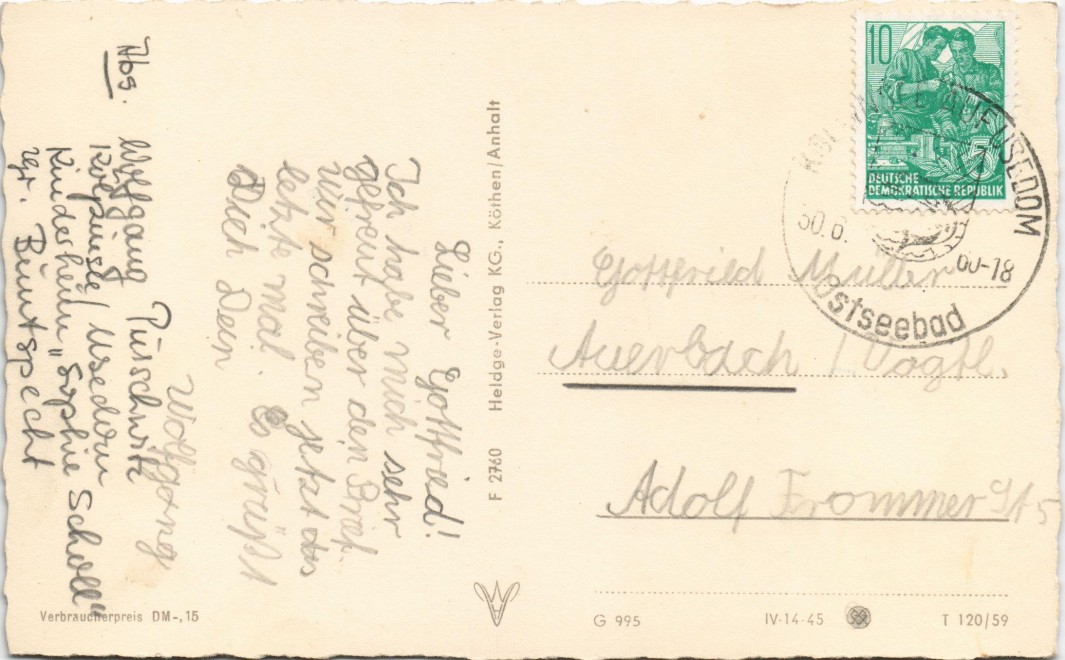 Lieber Gottfried!
Ich habe mich sehr
gefreut über den Brief.
Wir schreiben jetzt das
letzte mal. Es grüßt
Dich Dein
Wolfgang
Abs. Wolfgang Püschwitz
Kölpinsee/Usedom
Kinderheim „Sophie Scholl"
Gr. Buntspecht
Verbraucherpreis DM-,15
F 2760 Heldge-Verlag KG., Köthen/Anhalt
10
5
DEUTSCHE
DEMOKRATISCHE REPUBLIK
AUF USEDOM
30.6. 60-18
Ostseebad
Gottfried Müller
Auerbach / Vogtl.
Adolf Frommer St 5
G 995
IV-14-45
T 120/59